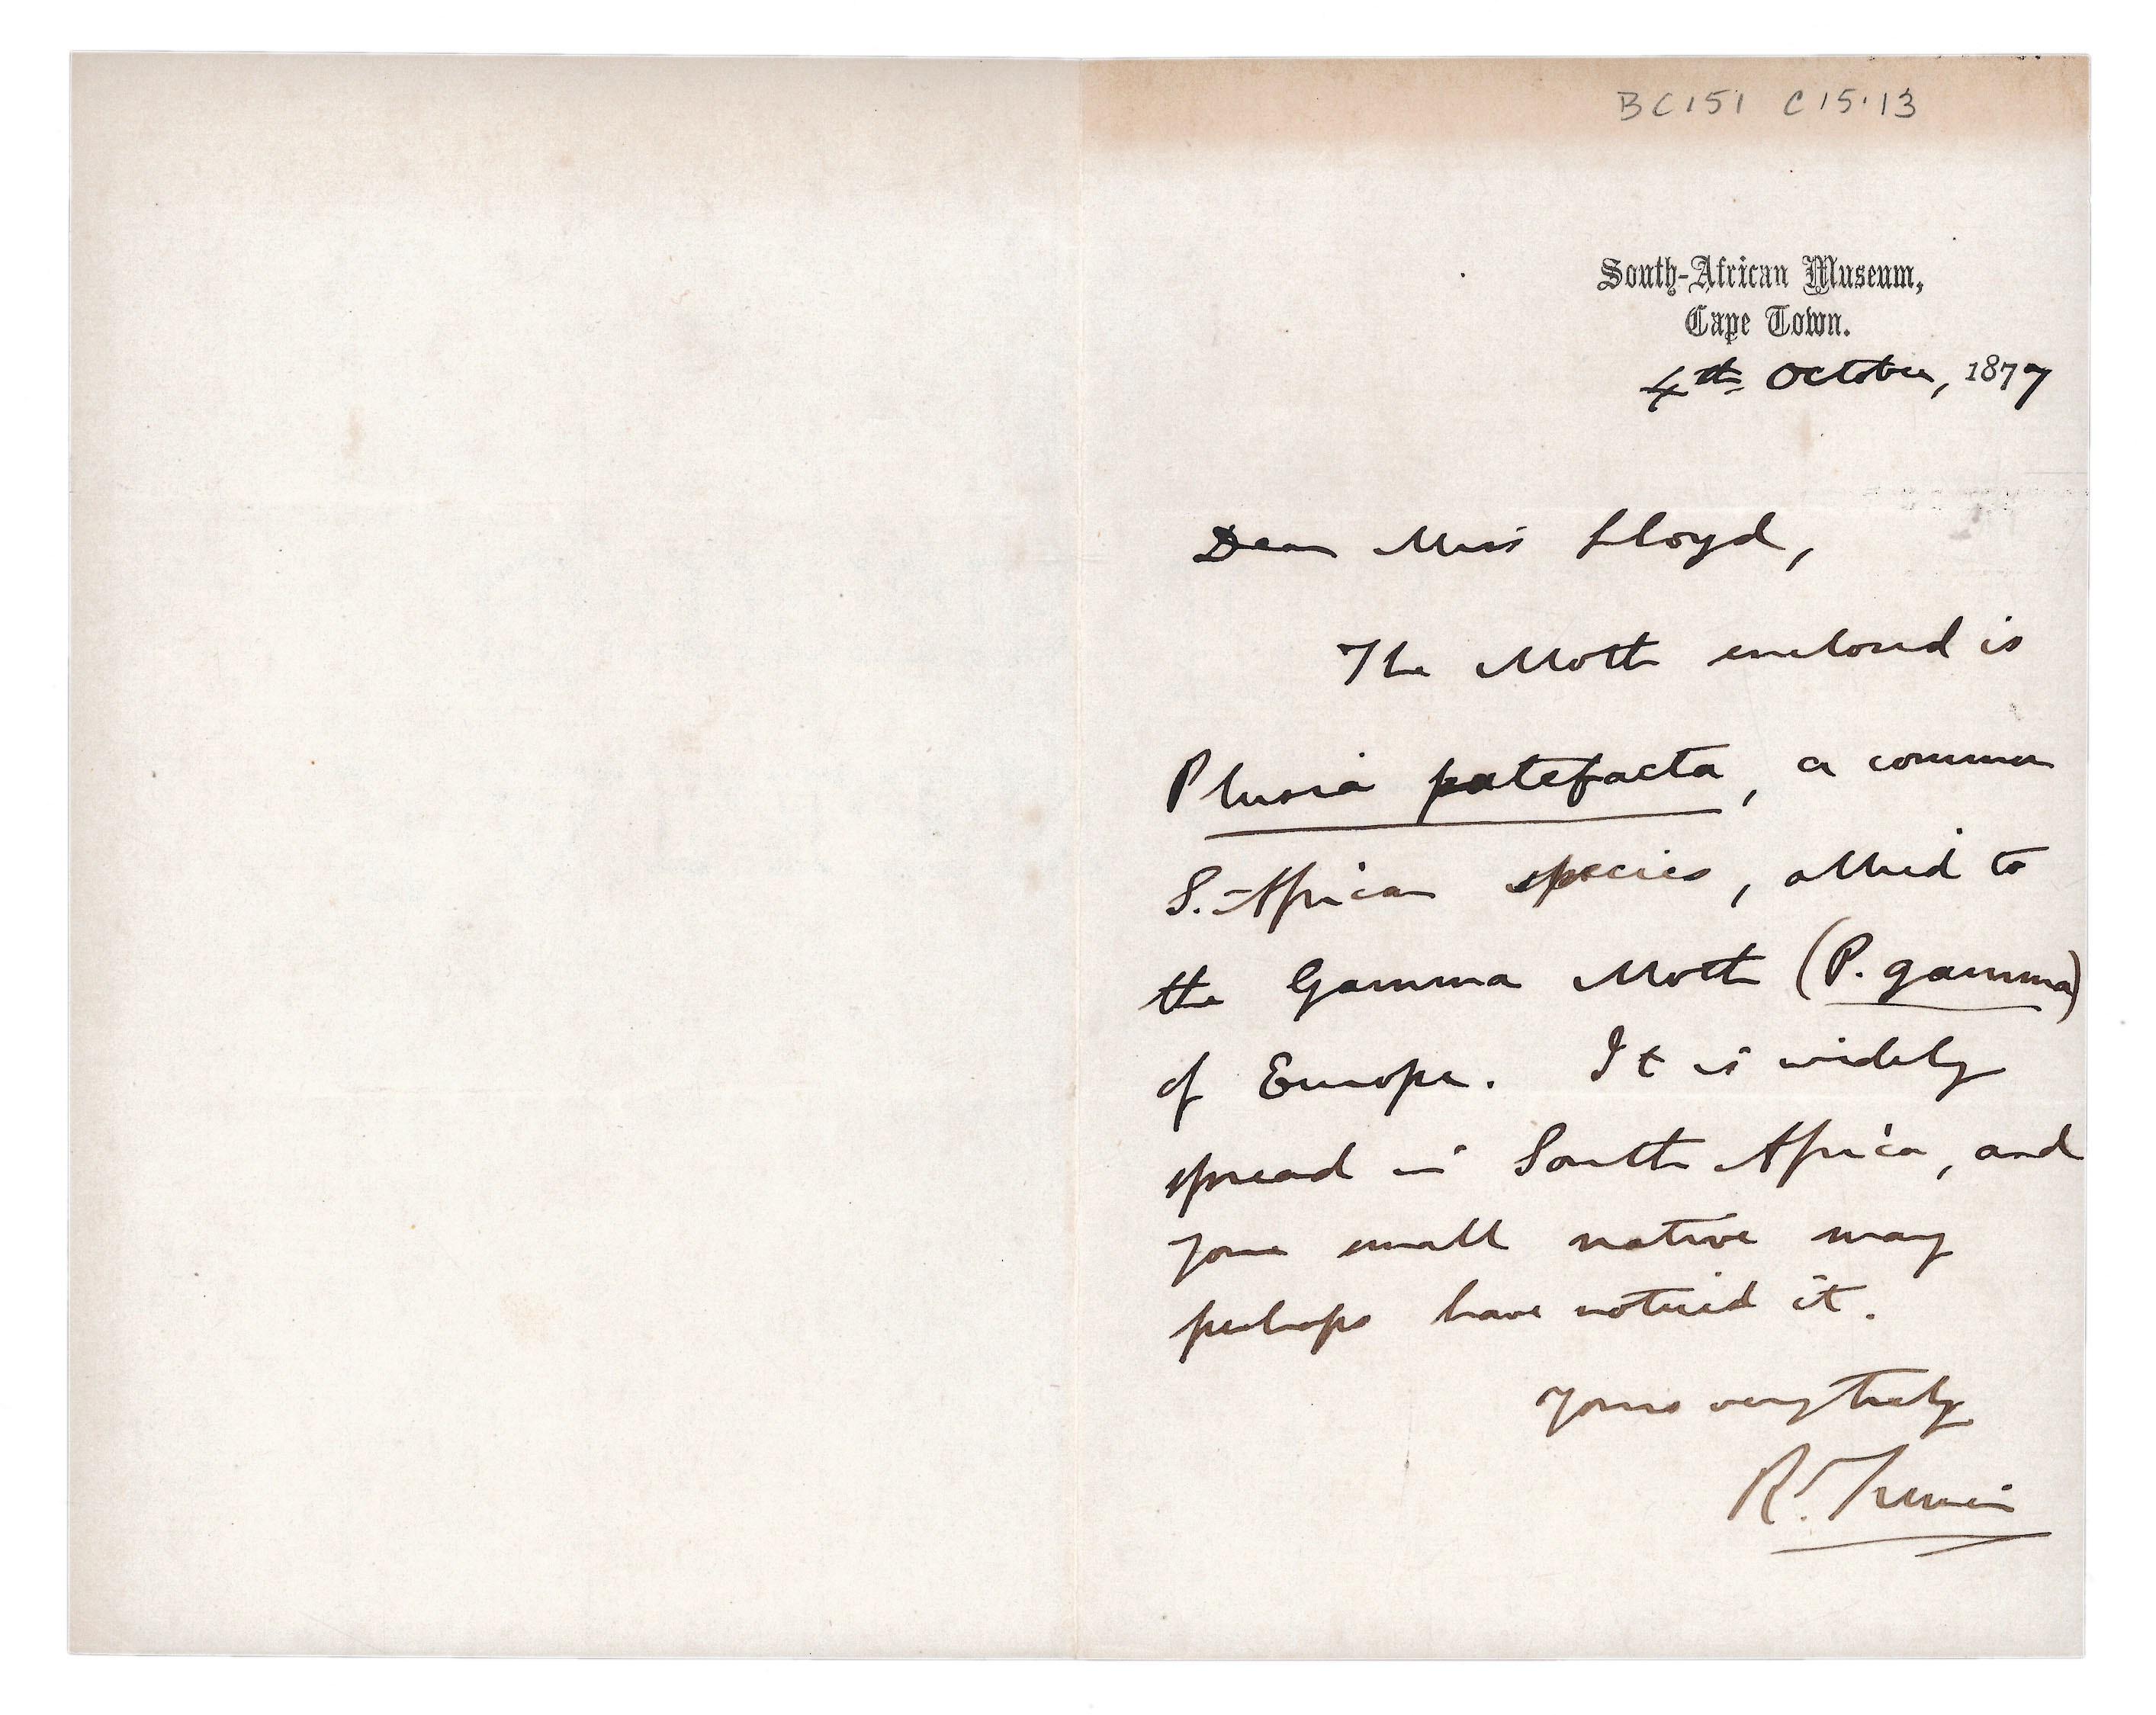 BC151 C15.13
South-African Museum,
Cape Town.
4th October, 1877
Dear Miss Lloyd,
The Moth enclosed is
Plusia patefacta, a common
S.-African species, allied to
the Gamma Moth (P. gamma)
of Europe. It is widely
spread in South Africa, and
your small native may
perhaps have noticed it.
Yours very truly
R. Trimen